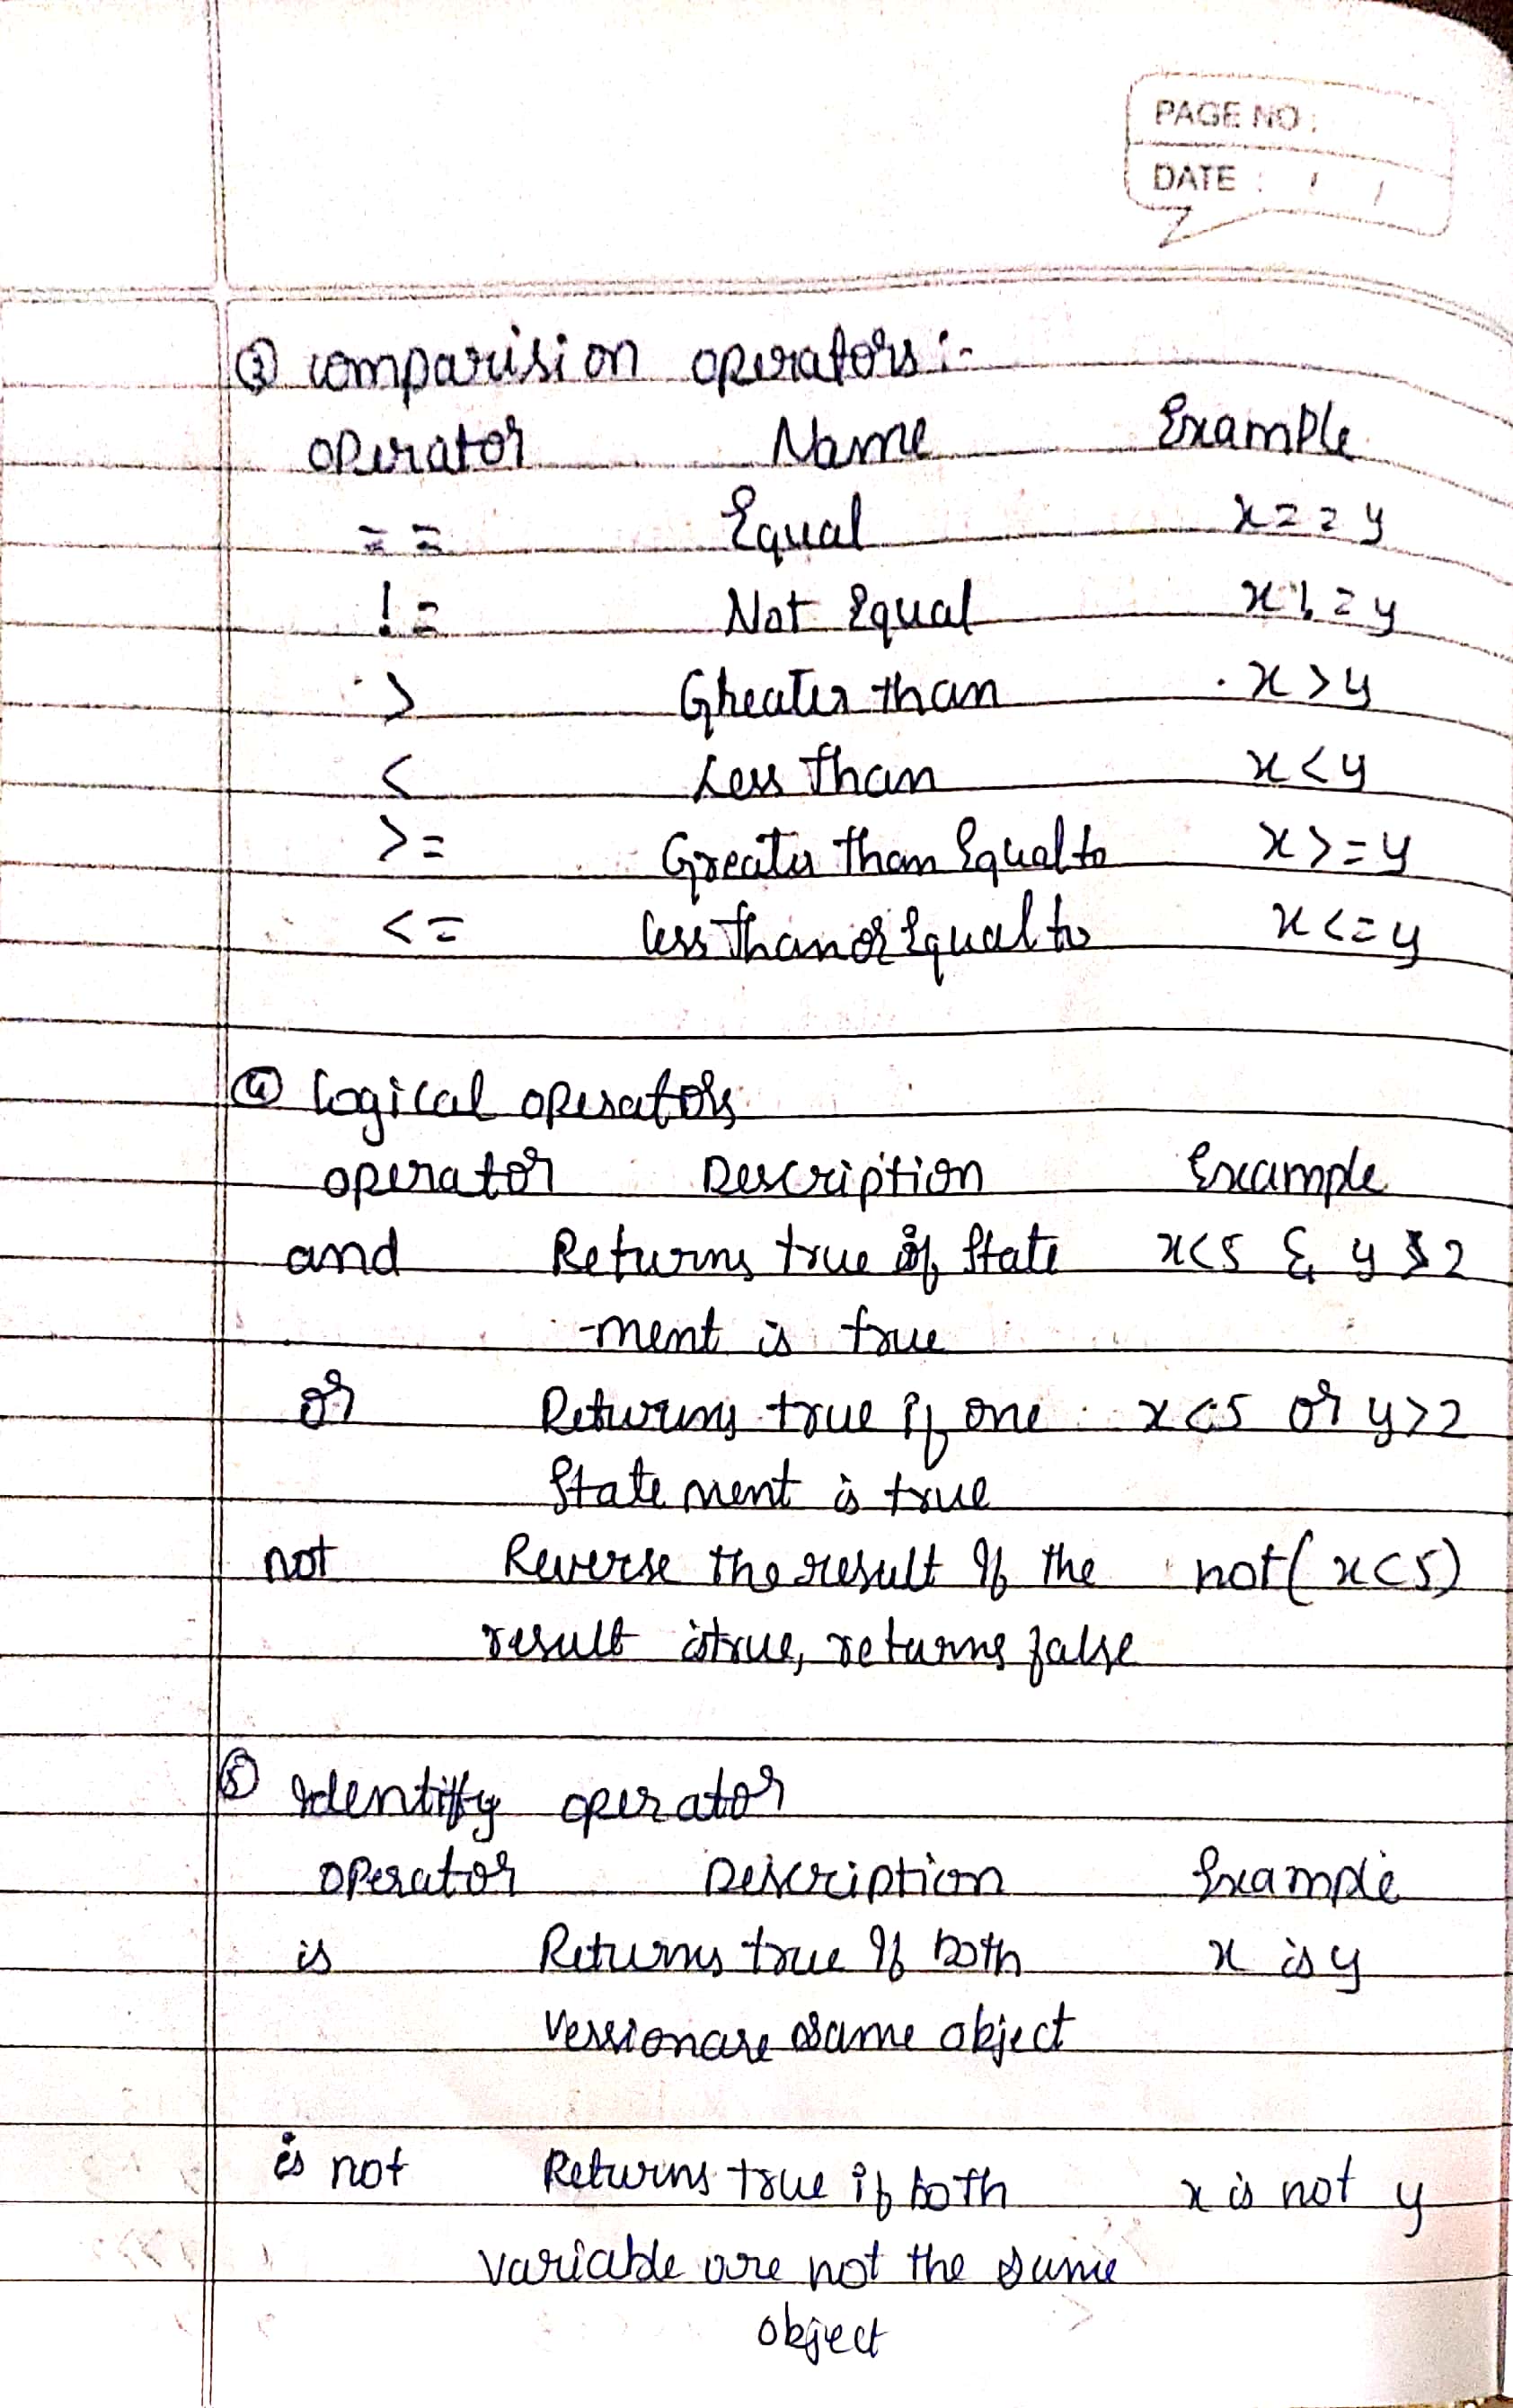 PAGE NO :
DATE : / /
③ comparision operators :-
operator Name Example
== Equal x==y
!= Not Equal x!=y
> Gheater than x>y
< Less than x<y
>= Greater than Equal to x>=y
<= less than or Equal to x<=y
④ logical operators
operator Description Example
and Returns true if State x<5 & y>2
-ment is true
or Returns true if one x<5 or y>2
Statement is true
not Reverse the result If the not(x<5)
result is true, returns false
⑤ Identify operator
operator Description Example
is Returns true If both x is y
Version are same object
is not Returns true if both x is not y
variable are not the same
object